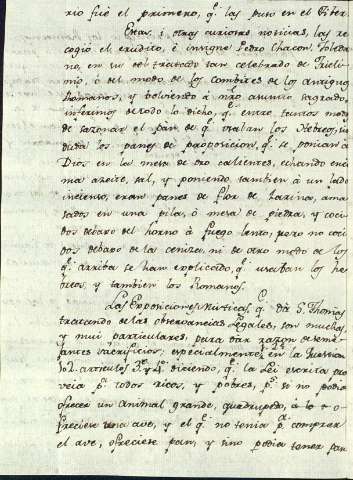 rio fué el primero, q.e las puso en el Fiter
Estas, i otras curiosas noticias, las re
cogió el erudito, é insigne Pedro Chacon, Toleda
no, en su tratado tan celebrado de Tricli
nio, ó del modo de los combites de los antiguos
Romanos, y bolviendo á nro asunto sagrado,
inferimos de todo lo dicho, q.e entre tantos modos
de sazonar el pan de q.e usaban los Hebreos, sin
duda los panes de proposicion, q.e se ponian a
Dios en la mesa de oro calientes, echando enci
ma azeite, sal, y poniendo tambien á un lado
incienso, eran panes de flor de harina, ama
sados en una pila, ó mesa de piedra, y coci
dos debaxo del horno á fuego lento, pero no coci
dos debaxo de la ceniza, ni de otro modo de los
q.e arriba se han explicado, q.e usaban los he
breos, y tambien los Romanos.
Las Exposiciones Misticas, q.e dá S. Thomas,
tratando de las observancias Legales, son muchas,
y mui particulares, para dar razon de seme
jantes sacrificios; especialmente, en la Question
102. articulos 3.o y 4.o diciendo, q.e la Lei escrita pro
veia p.a todos ricos, y pobres, p.a si no podia
ofrecer un animal grande, quadrupedo, o
freciese una ave, y el q.e no tenia p.a comprar
el ave, ofreciese pan, y si no podia tener pan